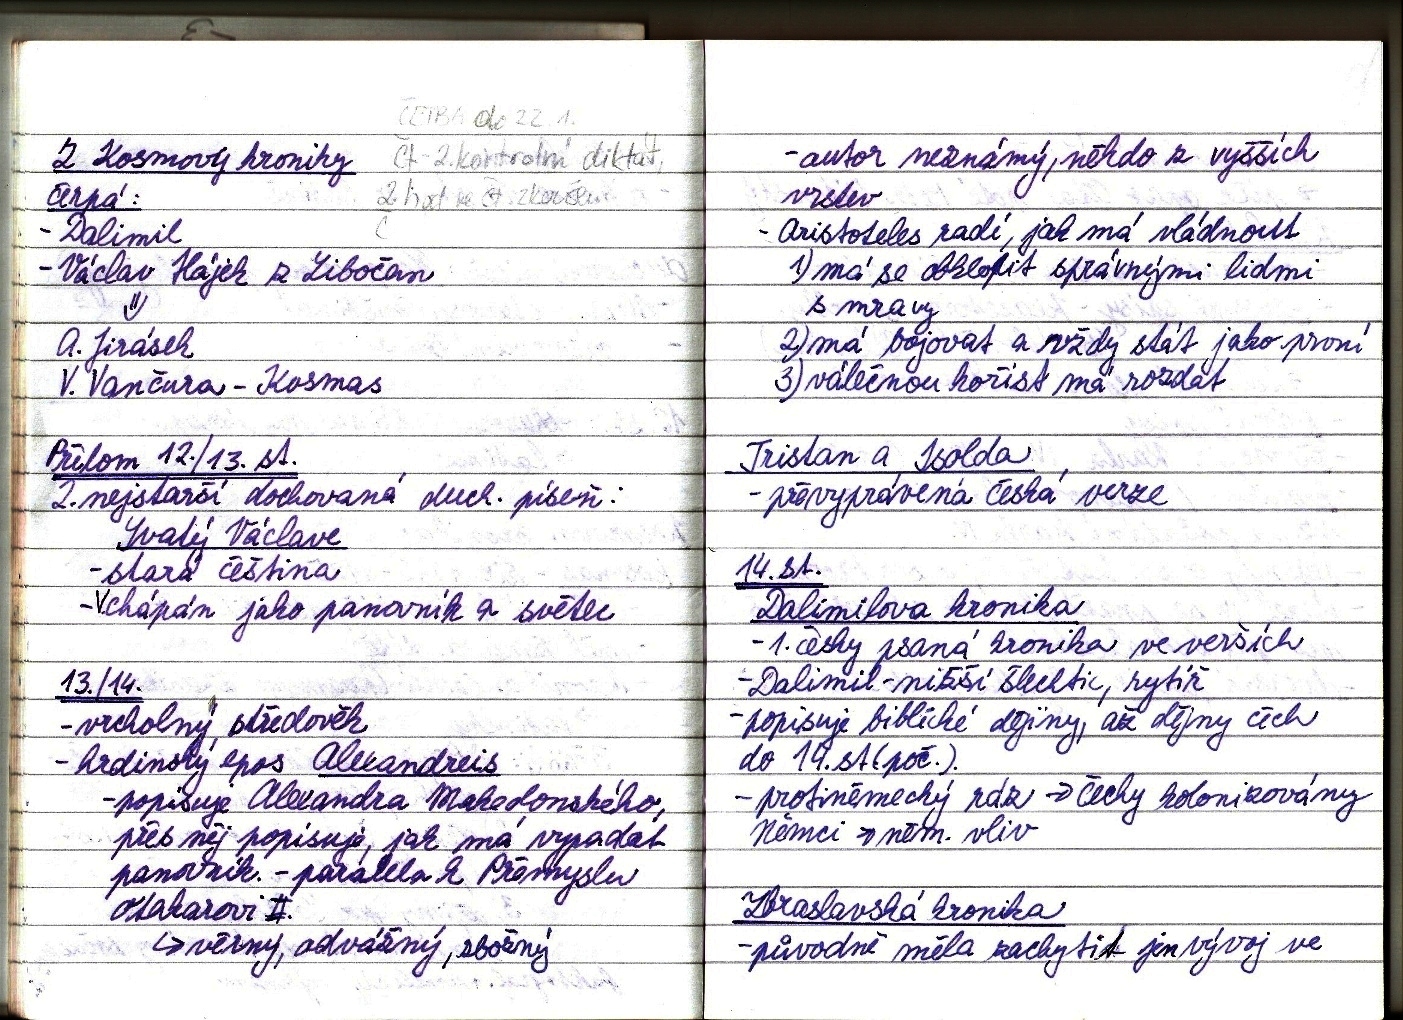 ČETBA do 22.1.
Čt - 2. kontrolní diktát,
2. ze Čt
Z Kosmovy kroniky
čerpá:
- Dalimil
- Václav Hájek z Libočan
⇓
A. Jirásek
V. Vančura - Kosmas
Přelom 12./13. st.
2. nejstarší dochovaná duch. píseň:
Svatý Václave
- stará čeština
- V. chápán jako panovník a světec
13./14.
- vrcholný středověk
- hrdinský epos Alexandreis
- popisuje Alexandra Makedonského,
přes něj popisuje, jak má vypadat
panovník. - paralela k Přemyslu
Otakarovi II.
↳ věrný, odvážný, zbožný
- autor neznámý, někdo z vyšších
vrstev
- Aristoteles radí, jak má vládnout
1) má se obklopit správnými lidmi
s mravy
2) má bojovat a vždy stát jako první
3) válečnou kořist má rozdat
Tristan a Isolda
- převyprávěná česká verze
14. st.
Dalimilova kronika
- 1. česky psaná kronika ve verších
- Dalimil - nižší šlechtic, rytíř
- popisuje biblické dějiny, až dějiny čech
do 14. st (poč.).
- protiněmecký ráz → Čechy kolonizovány
Němci → něm. vliv
Zbraslavská kronika
- původně měla zachytit jen vývoj ve